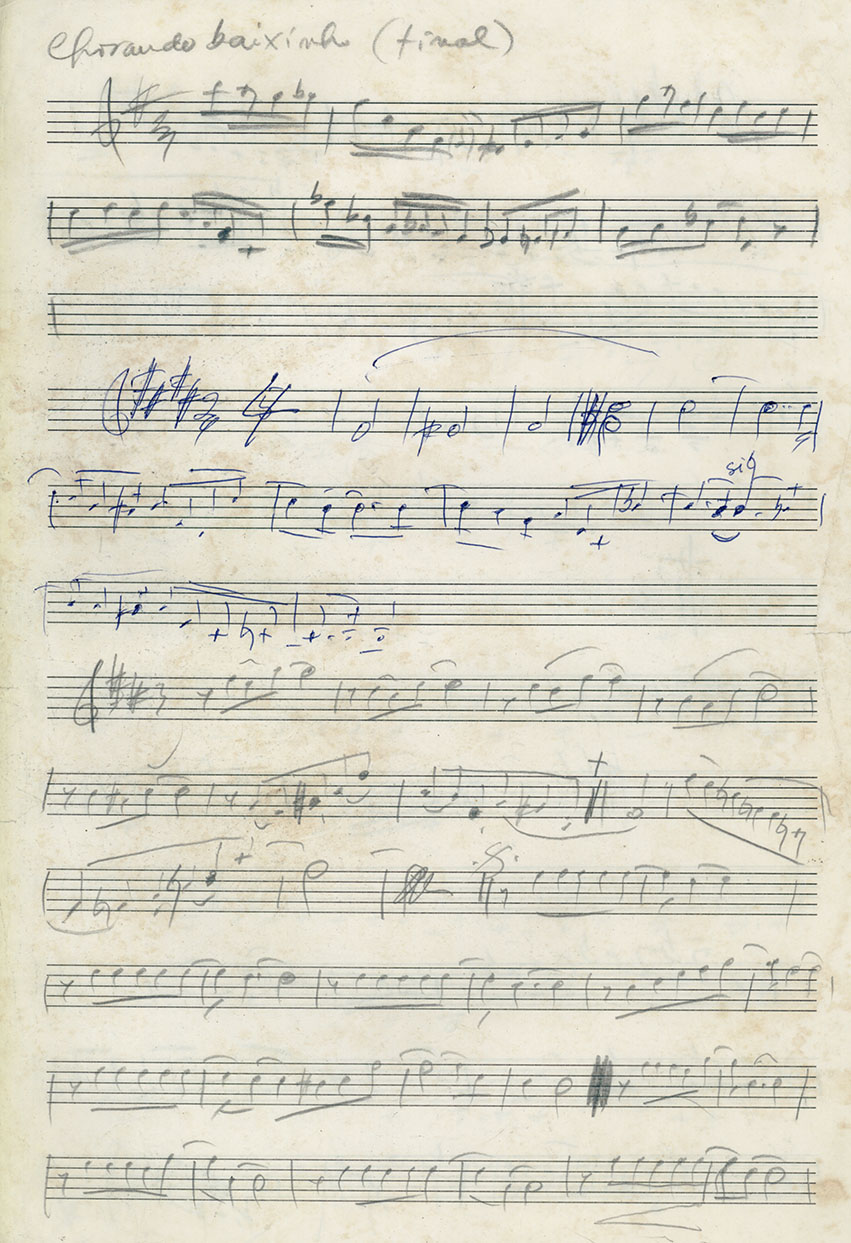 Chorando baixinho (final)
sig